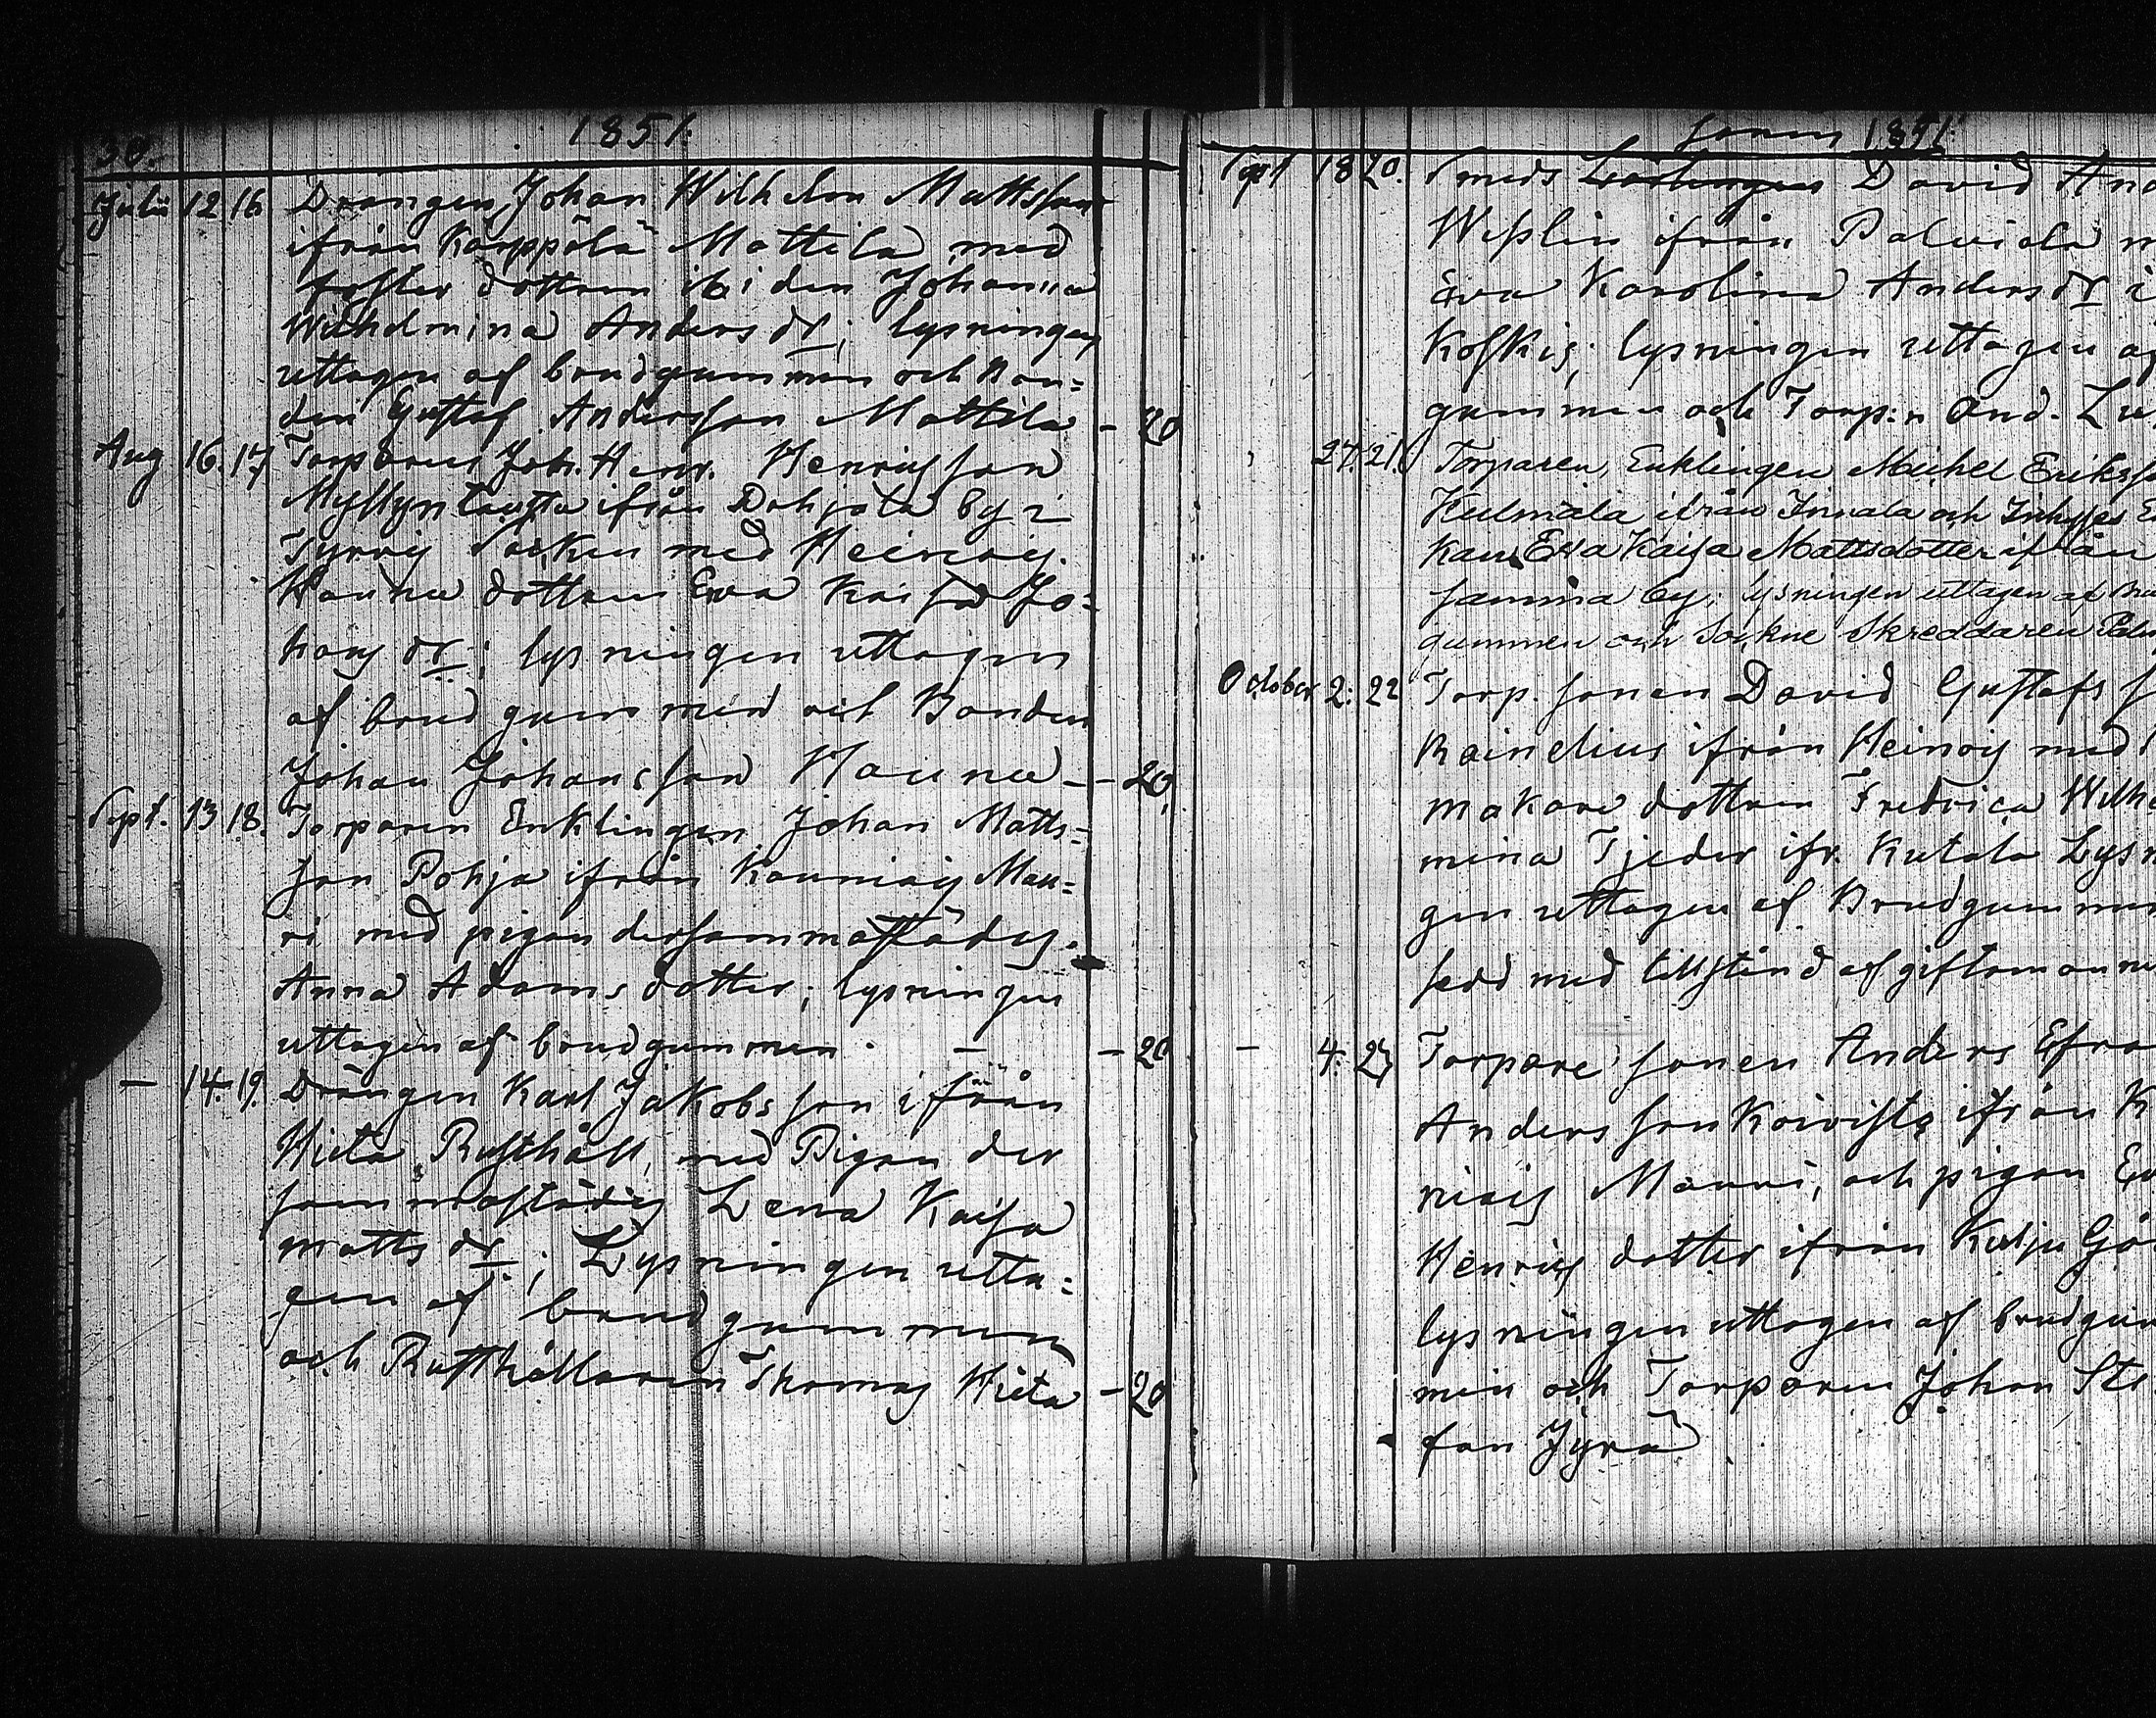 30.
1851.
Julii 12 16. Drängen Johan Wilhelm Mattsson
ifrån Karppälä Mattila med
foster dottren ibiden Johanna
Wilhelmina Anders dr; lysningen
uttagen af brudgummen och Bon=
den Gustaf Andersson Mattila - 20
Aug 16. 17 Torparen Joh. Henr. Henricsson
Myllyntausta ifrån Pohjola by i
Tyrvis Socken med Heinois
Haunu dottren Eva Kaisa Jo=
hans dr; lysningen uttagen
af brudgummen och Bonden
Johan Johansson Haunu - - 20.
Sept. 13 18. Torparen Enklingen Johan Matts=
son Pohja ifrån Kauniais Mau=
ri med pigan dersammastädes
Anna Adams dotter; lysningen
uttagen af brudgummen. - - 20
- 14. 19. Drängen Karl Jakobsson ifrån
Hieta Rusthåll, med Pigan der
sammastädes Lena Kaisa
Matts dr; Lysningen utta=
gen af brudgummen
och Rusthållaren Thomas Hieta - 20
1851.
Sept 18 20. Smeds David And
ifrån Palviala m
Eva Karolina Anders dr i
Koskis; lysningen uttagen af
gummen och Torp:n And. Lu
27. 21. Torparen, Enklingen Michel Eriks
Kulmala ifrån Innala och Inhyses E
kan Eva Kaisa Mattsdotter ifrån
samma by; lysningen uttagen af Bru
gummen och Sockne Skreddaren Pal
October 2. 22 Torp. sonen David Gustafs
Reinelius ifrån Heinois med
makare dottren Fredrica Wilhel
mina Tjeder ifr. Kutala Lysn
gen uttagen af Brudgummen
sedd med tillstånd af giftomannen
- 4. 23 Torpare sonen Anders Efra
Andersson Koivisto ifrån K
niais Mauri, och pigan Ev
Henrics dotter ifrån Kulju Gå
lysningen uttagen af brudgum
men och Torparen Johan Ste
fan Jyrä